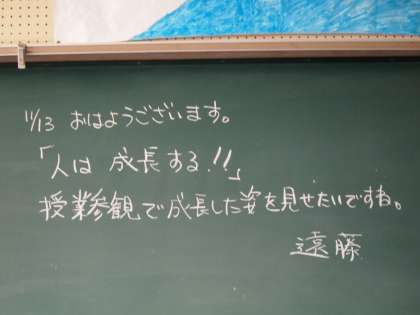 11/13 おはようございます。
「人は 成長する!!」
授業参観で成長した姿を見せたいですね。
遠藤